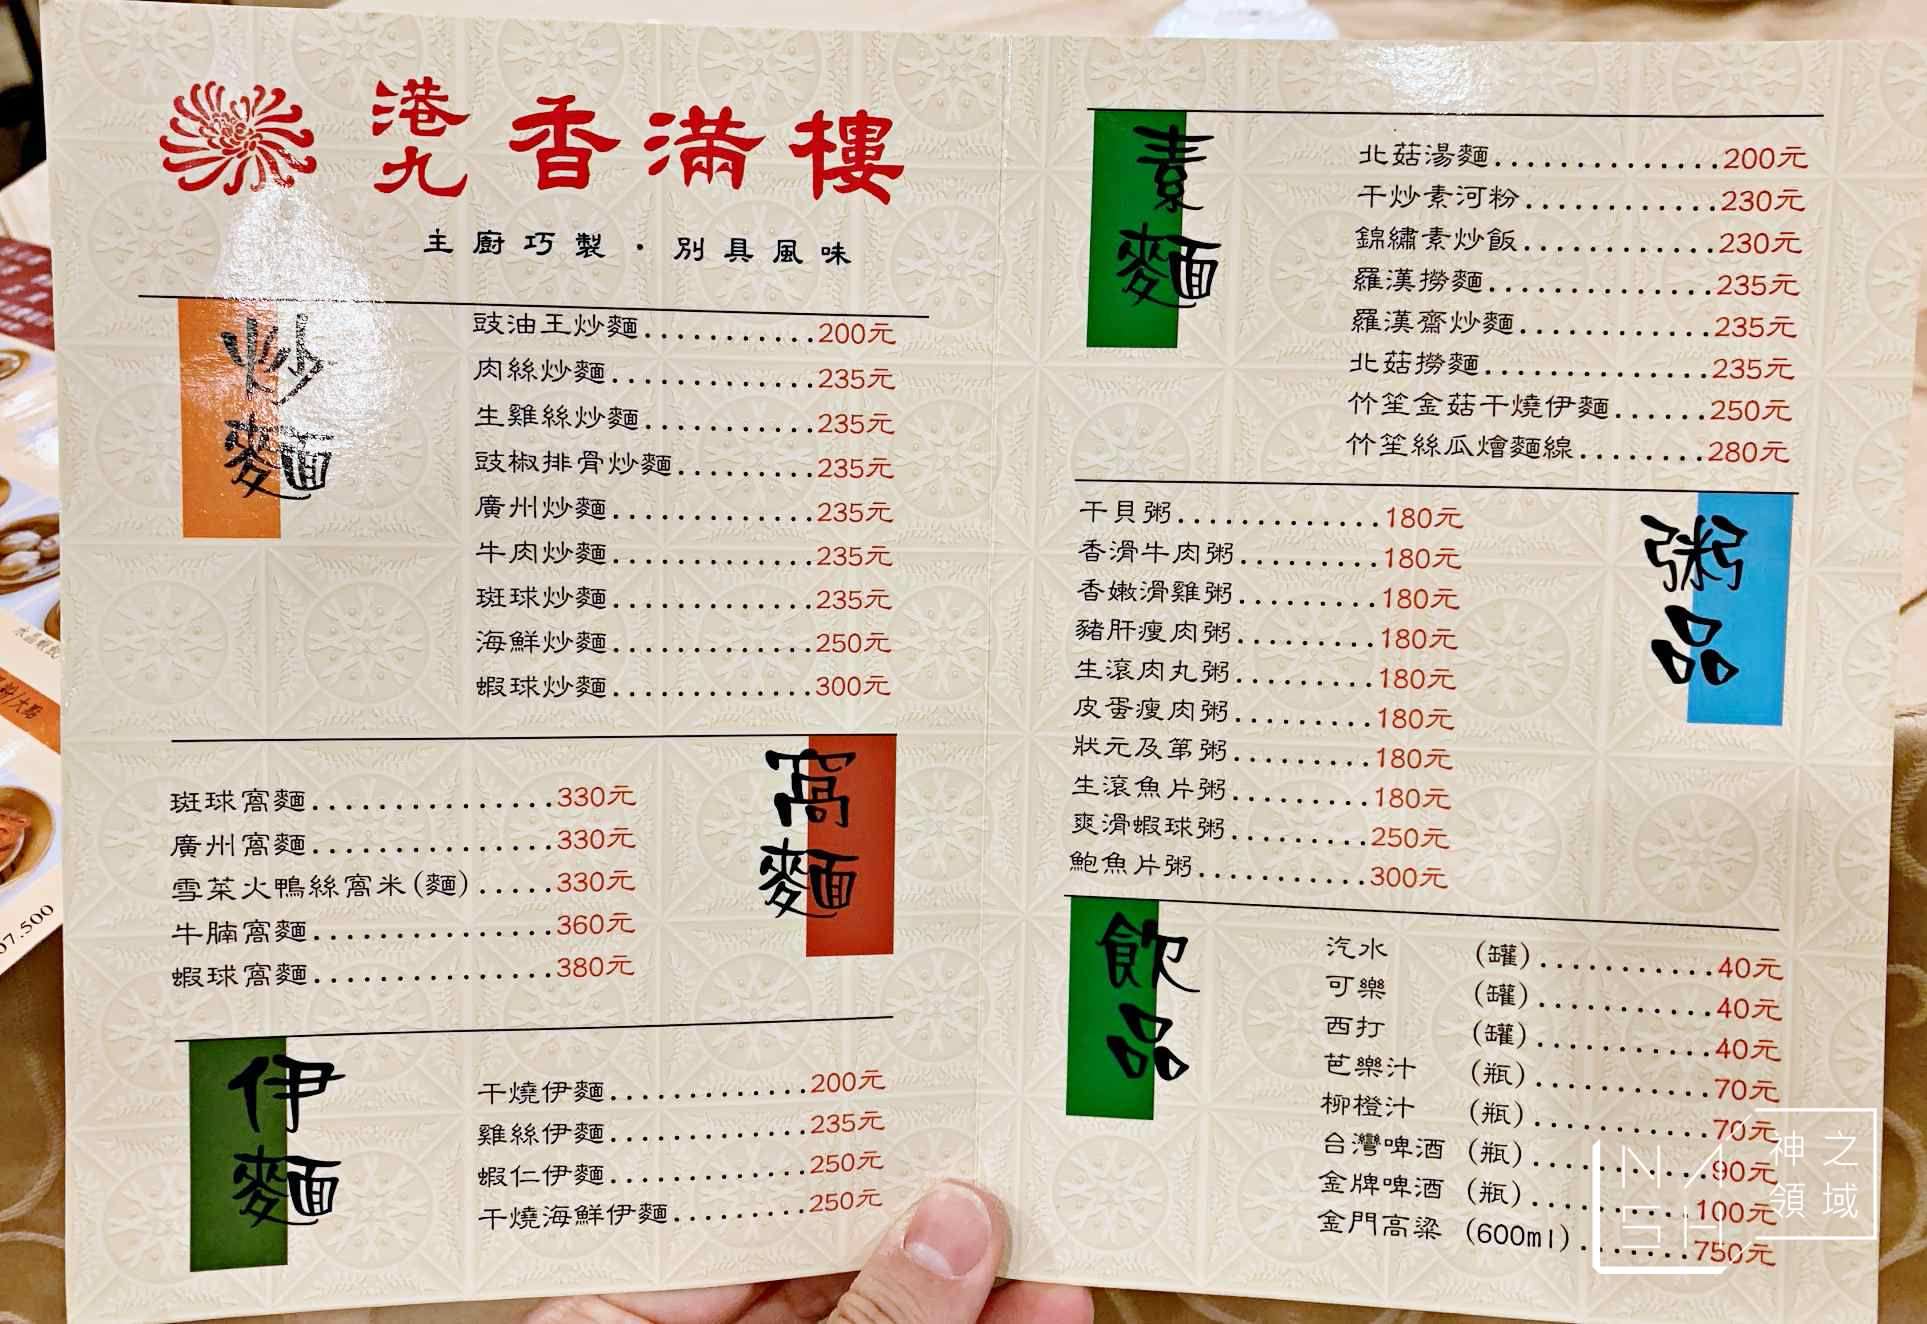 港九香滿樓
主廚巧製・別具風味
炒麵
豉油王炒麵............200元
肉絲炒麵..............235元
生雞絲炒麵............235元
豉椒排骨炒麵..........235元
廣州炒麵..............235元
牛肉炒麵..............235元
斑球炒麵..............235元
海鮮炒麵..............250元
蝦球炒麵..............300元
窩麵
斑球窩麵................330元
廣州窩麵................330元
雪菜火鴨絲窩米(麵).....330元
牛腩窩麵................360元
蝦球窩麵................380元
伊麵
干燒伊麵..............200元
雞絲伊麵..............235元
蝦仁伊麵..............250元
干燒海鮮伊麵..........250元
素麵
北菇湯麵..............200元
干炒素河粉............230元
錦繡素炒飯............230元
羅漢撈麵..............235元
羅漢齋炒麵............235元
北菇撈麵..............235元
竹笙金菇干燒伊麵......250元
竹笙絲瓜燴麵線........280元
粥品
干貝粥..............180元
香滑牛肉粥..........180元
香嫩滑雞粥..........180元
豬肝瘦肉粥..........180元
生滾肉丸粥..........180元
皮蛋瘦肉粥..........180元
狀元及第粥..........180元
生滾魚片粥..........180元
爽滑蝦球粥..........250元
鮑魚片粥............300元
飲品
汽水 (罐)...........40元
可樂 (罐)...........40元
西打 (罐)...........40元
芭樂汁 (瓶)...........70元
柳橙汁 (瓶)...........70元
台灣啤酒 (瓶)...........90元
金牌啤酒 (瓶)..........100元
金門高粱 (600ml).......750元
NASH
神之領域
07.500